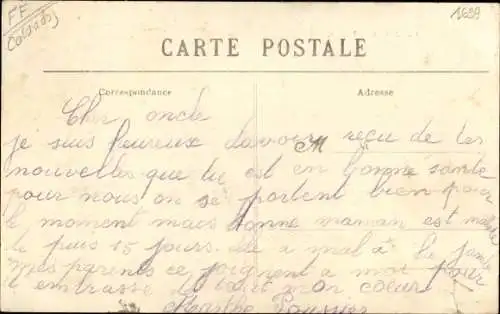 FF
Calvados
CARTE POSTALE
Correspondance
Adresse
Cher oncle
je suis heureux davoir reçu de tes
nouvelles que tu est en bonne sante
pour nous on se portent bien pour
le moment mais bonne maman est malade
de puis 15 jours elle a mal à la jambe
mes parents ce joignent a moi pour
t embrasse de tout mon cœur
Marthe Poussier